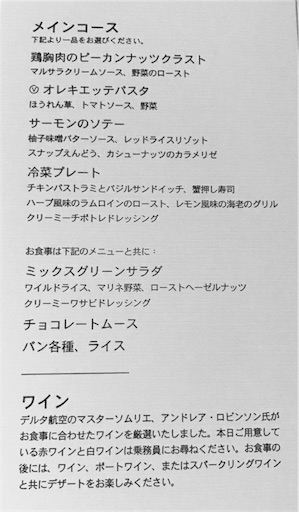 メインコース
下記より一品をお選びください。
鶏胸肉のピーカンナッツクラスト
マルサラクリームソース、野菜のロースト
Ⓥ オレキエッテパスタ
ほうれん草、トマトソース、野菜
サーモンのソテー
柚子味噌バターソース、レッドライスリゾット
スナップえんどう、カシューナッツのカラメリゼ
冷菜プレート
チキンパストラミとバジルサンドイッチ、蟹押し寿司
ハーブ風味のラムロインのロースト、レモン風味の海老のグリル
クリーミーチポトレドレッシング
お食事は下記のメニューと共に：
ミックスグリーンサラダ
ワイルドライス、マリネ野菜、ローストヘーゼルナッツ
クリーミーワサビドレッシング
チョコレートムース
パン各種、ライス
ワイン
デルタ航空のマスターソムリエ、アンドレア・ロビンソン氏が
お食事に合わせたワインを厳選いたしました。本日ご用意して
いる赤ワインと白ワインは乗務員にお尋ねください。お食事の
後には、ワイン、ポートワイン、またはスパークリングワイン
と共にデザートをお楽しみください。